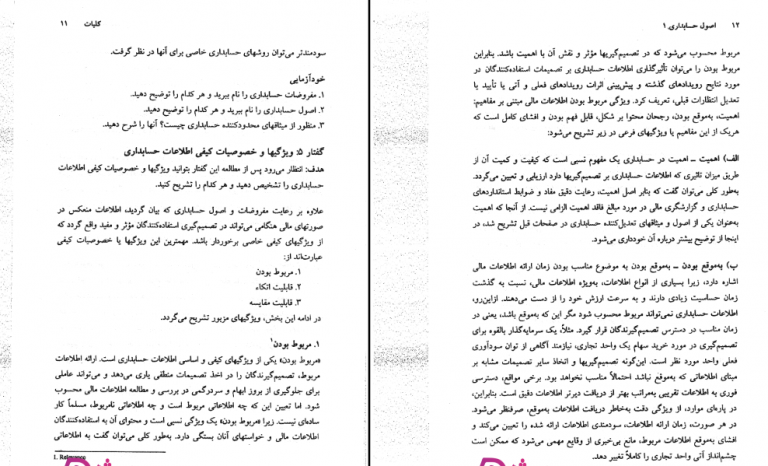 کلیات ۱۱
سودمندتر می‌توان روشهای حسابداری خاصی برای آنها در نظر گرفت.
خودآزمایی
۱. مفروضات حسابداری را نام ببرید و هر کدام را توضیح دهید.
۲. اصول حسابداری را نام ببرید و هر کدام را توضیح دهید.
۳. منظور از میثاقهای محدودکننده حسابداری چیست؟ آنها را شرح دهید.
گفتار ۵: ویژگیها و خصوصیات کیفی اطلاعات حسابداری
هدف: انتظار می‌رود پس از مطالعه این گفتار بتوانید ویژگیها و خصوصیات کیفی اطلاعات
حسابداری را تشخیص دهید و هر کدام را تشریح کنید.
علاوه بر رعایت مفروضات و اصول حسابداری که بیان گردید، اطلاعات منعکس در
صورتهای مالی هنگامی می‌تواند در تصمیم‌گیری استفاده‌کنندگان مؤثر و مفید واقع گردد که
از ویژگیهای کیفی خاصی برخوردار باشد. مهمترین این ویژگیها یا خصوصیات کیفی
عبارت‌اند از:
۱. مربوط بودن
۲. قابلیت اتکاء
۳. قابلیت مقایسه
در ادامه این بخش، ویژگیهای مزبور تشریح می‌گردد.
۱. مربوط بودن۱
«مربوط بودن» یکی از ویژگیهای کیفی و اساسی اطلاعات حسابداری است. ارائه اطلاعات
مربوط، تصمیم‌گیرندگان را در اخذ تصمیمات منطقی یاری می‌دهد و می‌تواند عاملی
برای جلوگیری از بروز ابهام و سردرگمی در بررسی و مطالعه اطلاعات مالی محسوب
شود. اما تعیین این که چه اطلاعاتی مربوط است و چه اطلاعاتی نامربوط، مسلماً کار
ساده‌ای نیست. زیرا «مربوط بودن» یک ویژگی نسبی است و محتوای آن به استفاده‌کنندگان
اطلاعات مالی و خواستهای آنان بستگی دارد. به‌طور کلی می‌توان گفت به اطلاعاتی
1. Relevance
۱۲ اصول حسابداری ۱
مربوط محسوب می‌شود که در تصمیم‌گیریها مؤثر و نقش آن با اهمیت باشد. بنابراین
مربوط بودن را می‌توان تأثیرگذاری اطلاعات حسابداری بر تصمیمات استفاده‌کنندگان در
مورد نتایج رویدادهای گذشته و پیش‌بینی اثرات رویدادهای فعلی و آتی یا تأیید یا
تعدیل انتظارات قبلی، تعریف کرد. ویژگی مربوط بودن اطلاعات مالی مبتنی بر مفاهیم:
اهمیت، به‌موقع بودن، رجحان محتوا بر شکل، قابل فهم بودن و افشای کامل است که
هریک از این مفاهیم یا ویژگیهای فرعی در زیر تشریح می‌شود:
الف) اهمیت ــ اهمیت در حسابداری یک مفهوم نسبی است که کیفیت و کمیت آن از
طریق میزان تاثیری که اطلاعات حسابداری بر تصمیم‌گیریها دارد ارزیابی و تعیین می‌گردد.
به‌طور کلی می‌توان گفت که بنابر اصل اهمیت، رعایت دقیق مفاد و ضوابط استانداردهای
حسابداری و گزارشگری مالی در مورد مبالغ فاقد اهمیت الزامی نیست. از آنجا که اهمیت
به‌عنوان یکی از اصول و میثاقهای تعدیل‌کننده حسابداری در صفحات قبل تشریح شد، در
اینجا از توضیح بیشتر درباره آن خودداری می‌شود.
ب) به‌موقع بودن ــ به‌موقع بودن به موضوع مناسب بودن زمان ارائه اطلاعات مالی
اشاره دارد، زیرا بسیاری از انواع اطلاعات، به‌ویژه اطلاعات مالی، نسبت به گذشت
زمان حساسیت زیادی دارند و به سرعت ارزش خود را از دست می‌دهند. ازاین‌رو،
اطلاعات حسابداری نمی‌تواند مربوط محسوب شود مگر این که به‌موقع باشد، یعنی در
زمان مناسب در دسترس تصمیم‌گیرندگان قرار گیرد. مثلاً، یک سرمایه‌گذار بالقوه برای
تصمیم‌گیری در مورد خرید سهام یک واحد تجاری، نیازمند آگاهی از توان سودآوری
فعلی واحد مورد نظر است. این‌گونه تصمیم‌گیریها و اتخاذ سایر تصمیمات مشابه بر
مبنای اطلاعاتی که به‌موقع نباشد احتمالاً مناسب نخواهد بود. برخی مواقع، دسترسی
فوری به اطلاعات تقریبی به‌مراتب بهتر از دریافت دیرتر اطلاعات دقیق است. بنابراین،
در پاره‌ای موارد، از ویژگی دقت به‌خاطر دریافت اطلاعات به‌موقع، صرفنظر می‌شود.
در هر صورت، زمان ارائه اطلاعات، سودمندی اطلاعات ارائه شده را تعیین می‌کند و
افشای به‌موقع اطلاعات مربوط، مانع بی‌خبری از وقایع مهمی می‌شود که ممکن است
چشم‌انداز آتی واحد تجاری را کاملاً تغییر دهد.